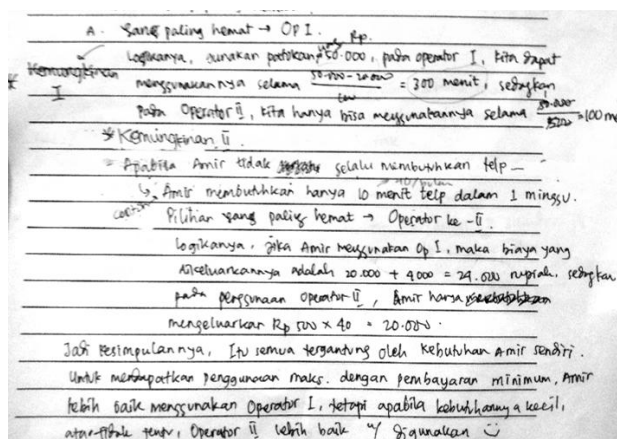 A. Yang paling hemat → OP I.
Logikanya, gunakan patokan uang Rp. 50.000, pada operator I, kita dapat
* Kemungkinan I menggunakannya selama 50.000 - 20.000 / 100 = 300 menit, sedangkan
pada Operator II, kita hanya bisa menggunakannya selama 50.000 / 500 = 100 me
* Kemungkinan II
= Apabila Amir tidak selalu membutuhkan telp —
contoh ↳ Amir membutuhkan hanya 10 menit telp dalam 1 minggu. → 40/bulan
Pilihan yang paling hemat → Operator ke-II.
Logikanya, jika Amir menggunakan Op I, maka biaya yang
dikeluarkannya adalah 20.000 + 4000 = 24.000 rupiah, sedangkan
pada penggunaan operator II, Amir hanya
mengeluarkan Rp 500 × 40 = 20.000.
Jadi kesimpulannya, Itu semua tergantung oleh kebutuhan Amir sendiri.
Untuk mendapatkan penggunaan maks. dengan pembayaran minimum, Amir
lebih baik menggunakan Operator I, tetapi apabila kebutuhannya kecil,
atau tidak tentu, Operator II lebih baik u/ digunakan